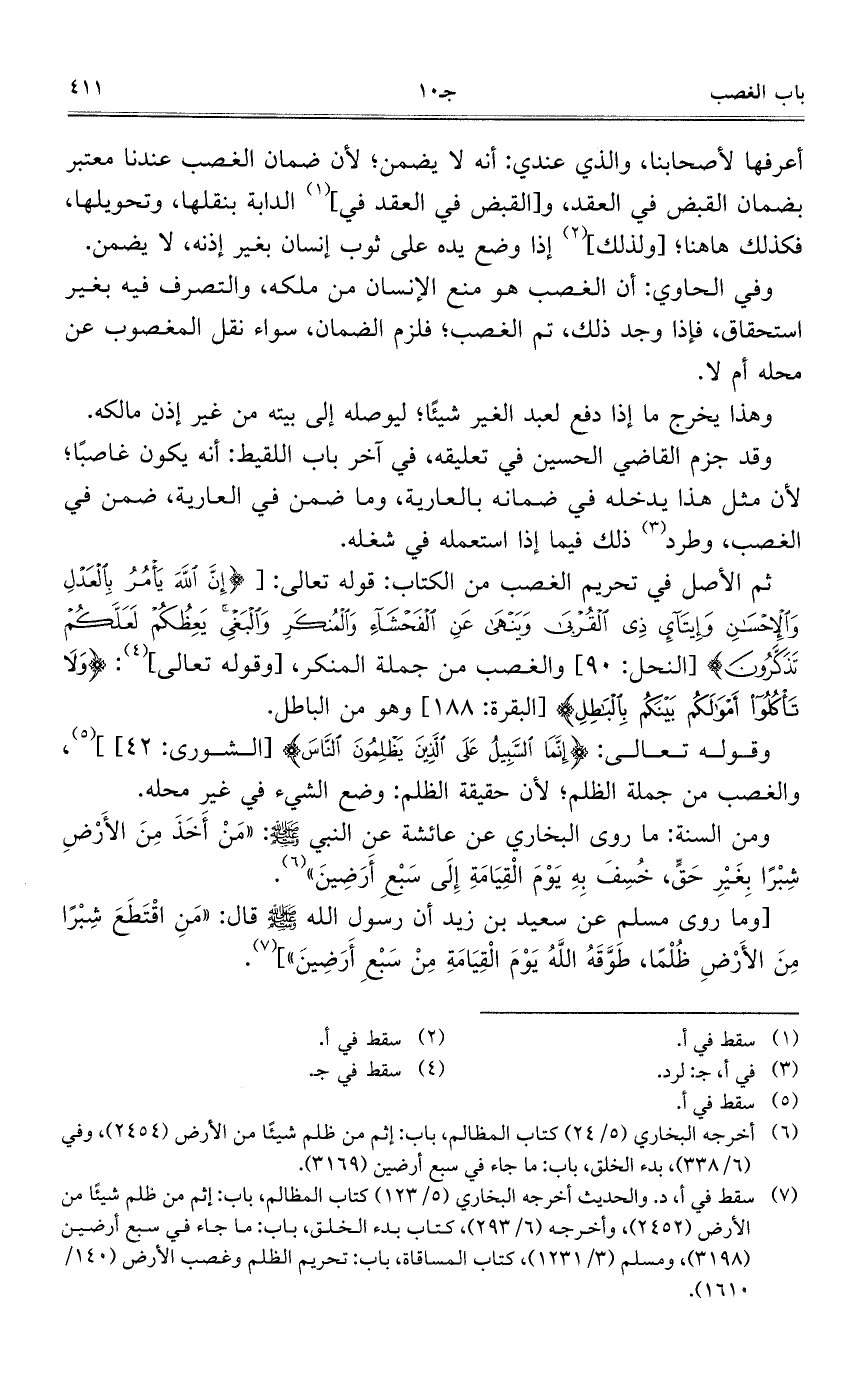 باب الغصب جـ١٠ ٤١١
أعرفها لأصحابنا، والذي عندي: أنه لا يضمن؛ لأن ضمان الغصب عندنا معتبر
بضمان القبض في العقد، و[القبض في العقد في](١) الدابة بنقلها، وتحويلها،
فكذلك هاهنا؛ [ولذلك](٢) إذا وضع يده على ثوب إنسان بغير إذنه، لا يضمن.
وفي الحاوي: أن الغصب هو منع الإنسان من ملكه، والتصرف فيه بغير
استحقاق، فإذا وجد ذلك، تم الغصب؛ فلزم الضمان، سواء نقل المغصوب عن
محله أم لا.
وهذا يخرج ما إذا دفع لعبد الغير شيئًا؛ ليوصله إلى بيته من غير إذن مالكه.
وقد جزم القاضي الحسين في تعليقه، في آخر باب اللقيط: أنه يكون غاصبًا؛
لأن مثل هذا يدخله في ضمانه بالعارية، وما ضمن في العارية، ضمن في
الغصب، وطرد(٣) ذلك فيما إذا استعمله في شغله.
ثم الأصل في تحريم الغصب من الكتاب: قوله تعالى: [ ﴿إِنَّ ٱللَّهَ يَأْمُرُ بِٱلْعَدْلِ
وَٱلْإِحْسَٰنِ وَإِيتَآيِٕ ذِى ٱلْقُرْبَىٰ وَيَنْهَىٰ عَنِ ٱلْفَحْشَآءِ وَٱلْمُنكَرِ وَٱلْبَغْيِ ۚ يَعِظُكُمْ لَعَلَّكُمْ
تَذَكَّرُونَ﴾ [النحل: ٩٠] والغصب من جملة المنكر، [وقوله تعالى](٤): ﴿وَلَا
تَأْكُلُوٓا۟ أَمْوَٰلَكُم بَيْنَكُم بِٱلْبَٰطِلِ﴾ [البقرة: ١٨٨] وهو من الباطل.
وقوله تعالى: ﴿إِنَّمَا ٱلسَّبِيلُ عَلَى ٱلَّذِينَ يَظْلِمُونَ ٱلنَّاسَ﴾ [الشورى: ٤٢] ](٥)،
والغصب من جملة الظلم؛ لأن حقيقة الظلم: وضع الشيء في غير محله.
ومن السنة: ما روى البخاري عن عائشة عن النبي ﷺ: «مَنْ أَخَذَ مِنَ الأَرْضِ
شِبْرًا بِغَيْرِ حَقٍّ، خُسِفَ بِهِ يَوْمَ الْقِيَامَةِ إِلَى سَبْعِ أَرَضِينَ»(٦).
[وما روى مسلم عن سعيد بن زيد أن رسول الله ﷺ قال: «مَنِ اقْتَطَعَ شِبْرًا
مِنَ الأَرْضِ ظُلْمًا، طَوَّقَهُ اللَّهُ يَوْمَ الْقِيَامَةِ مِنْ سَبْعِ أَرَضِينَ»](٧).
(١) سقط في أ. (٢) سقط في أ.
(٣) في أ، جـ: لرد. (٤) سقط في جـ.
(٥) سقط في أ.
(٦) أخرجه البخاري (٥/ ٢٤) كتاب المظالم، باب: إثم من ظلم شيئًا من الأرض (٢٤٥٤)، وفي
(٦/ ٣٣٨)، بدء الخلق، باب: ما جاء في سبع أرضين (٣١٦٩).
(٧) سقط في أ، د. والحديث أخرجه البخاري (٥/ ١٢٣) كتاب المظالم، باب: إثم من ظلم شيئًا من
الأرض (٢٤٥٢)، وأخرجه (٦/ ٢٩٣)، كتاب بدء الخلق، باب: ما جاء في سبع أرضين
(٣١٩٨)، ومسلم (٣/ ١٢٣١)، كتاب المساقاة، باب: تحريم الظلم وغصب الأرض (١٤٠/
١٦١٠).